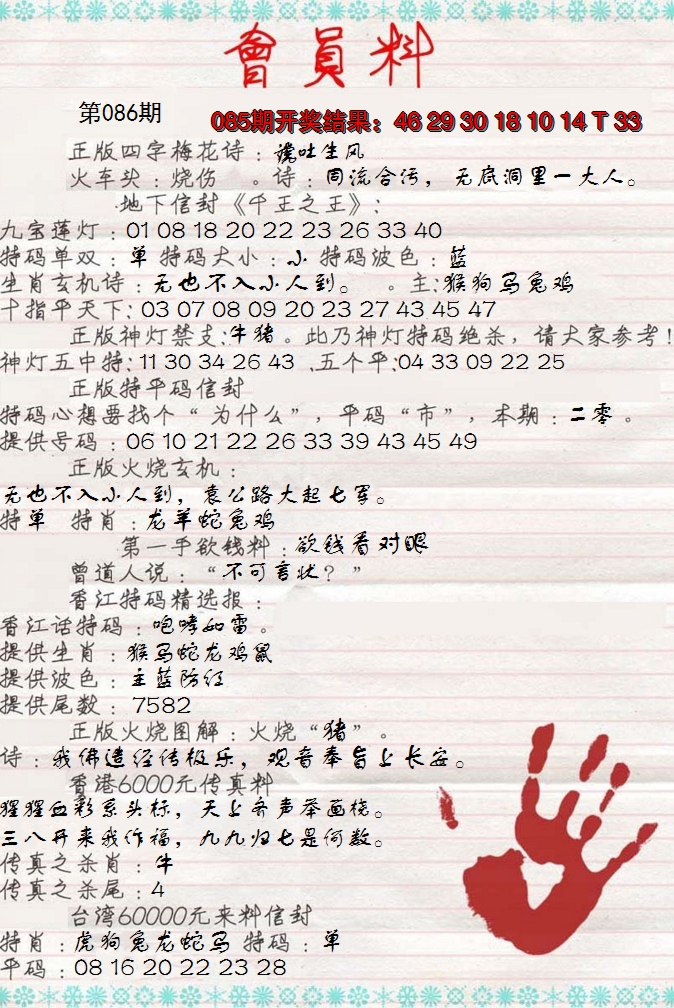 會員料
第086期
085期开奖结果：46 29 30 18 10 14 T 33
正版四字梅花诗：谈吐生风
火车头：烧伤 。诗：同流合污，无底洞里一大人。
地下信封《千王之王》：
九宝莲灯：01 08 18 20 22 23 26 33 40
特码单双：单 特码大小：小 特码波色：蓝
生肖玄机诗：无也不入小人到。 。主：猴狗马兔鸡
十指平天下：03 07 08 09 20 23 27 43 45 47
正版神灯禁支：牛猪。此乃神灯特码绝杀，请大家参考！
神灯五中特：11 30 34 26 43 .五个平：04 33 09 22 25
正版特平码信封
特码心想要找个“为什么”，平码“市”，本期：二零。
提供号码：06 10 21 22 26 33 39 43 45 49
正版火烧玄机：
无也不入小人到，袁公路大起七军。
特单 特肖：龙羊蛇兔鸡
第一手欲钱料：欲钱看对眼
曾道人说：“不可言状？”
香江特码精选报：
香江话特码：咆哮如雷。
提供生肖：猴马蛇龙鸡鼠
提供波色：主蓝防红
提供尾数：7582
正版火烧图解：火烧“猪”。
诗：我佛造经传极乐，观音奉旨上长安。
香港6000元传真料
猩猩血彩系头标，天上齐声举画桡。
三八开来我作福，九九归七是何数。
传真之杀肖：牛
传真之杀尾：4
台湾60000元来料信封
特肖：虎狗兔龙蛇马 特码：单
平码：08 16 20 22 23 28